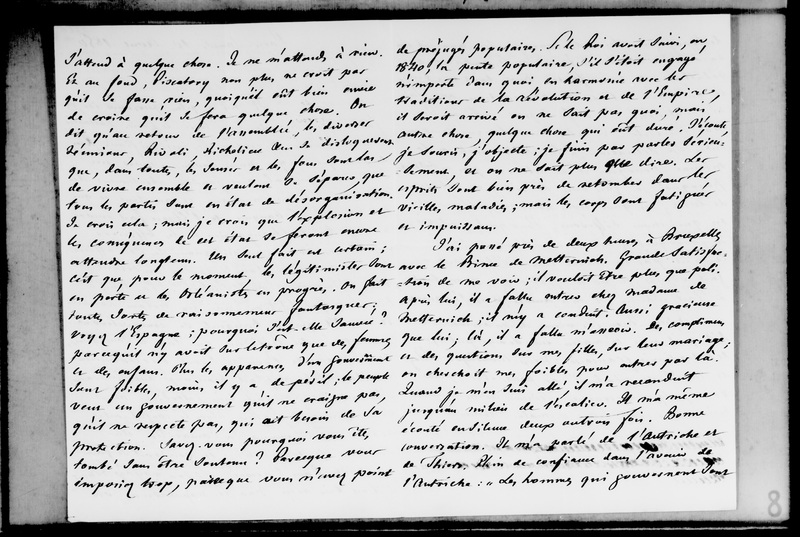 s'attend à quelque chose. Je ne m'attends à rien.
Et au fond, Piscatory non plus ne croit pas
qu'il se fasse rien, quoiqu'il eût bien envie
de croire qu'il se fera quelque chose. On
dit qu'au retour de l'assemblée, les diverses
réunions, Rivoli Richelieu &c. se disloqueront
que, dans toutes, les sensés et les fous sont las
de vivre ensemble et veulent se séparer, que
tous les partis sont en état de désorganisation.
Je crois cela; mais je crois que l'explosion et
les conséquences de cet état se feront encore
attendre longtems. Un seul fait est certain;
c'est que pour le moment, les légitimistes sont
en perte et les Orléanistes en progrès. On fait
toutes sortes de raisonnemens fantasques;
voyez l'Espagne; pourquoi s'est-elle sauvée?
parcequ'il n'y avoit sur le trône que des femmes
et des enfans. Plus les apparences d'un gouvernement
sont foibles, moins il y a de péril; le peuple
veut un gouvernement qu'il ne craigne pas,
qu'il ne respecte pas, qui ait besoin de sa
protection. Savez-vous pourquoi vous êtes
tombé sans être soutenu? Parceque vous
imposiez trop, parceque vous n'aviez point
de préjugés populaires. Si le Roi avoit suivi, en
1840, la pente populaire, s'il s'étoit engagé,
n'importe dans quoi en harmonie avec les
traditions de la révolution et de l'Empire,
il seroit arrivé on ne sait pas quoi, mais
autre chose, quelque chose qui eût duré. J'écoute,
je souris, j'objecte; je finis par parler sérieu-
sement, et on ne sait plus que dire. Les
esprits sont bien près de retomber dans les
vieilles maladies; mais les corps sont fatigués
et impuissans.
J'ai passé près de deux heures, à Bruxelles
avec le Prince de Metternich. Grande satisfac-
tion de me voir; il vouloit être plus que poli.
Après lui, il a fallu entrer chez Madame de
Metternich; il m'y a conduit. Aussi gracieuse
que lui; là, il a fallu m'asseoir. Des complimens
et des questions sur mes filles, sur leur mariage;
on cherchoit mes foibles pour entrer par là.
Quand je m'en suis allé il m'a reconduit
jusqu'au milieu de l'escalier. Il m'a même
écouté en silence deux ou trois fois. Bonne
conversation. Il m'a parlé de l'Autriche et
de Thiers. Plein de confiance dans l'avenir de
l'Autriche: "Les hommes qui gouvernent sont
8